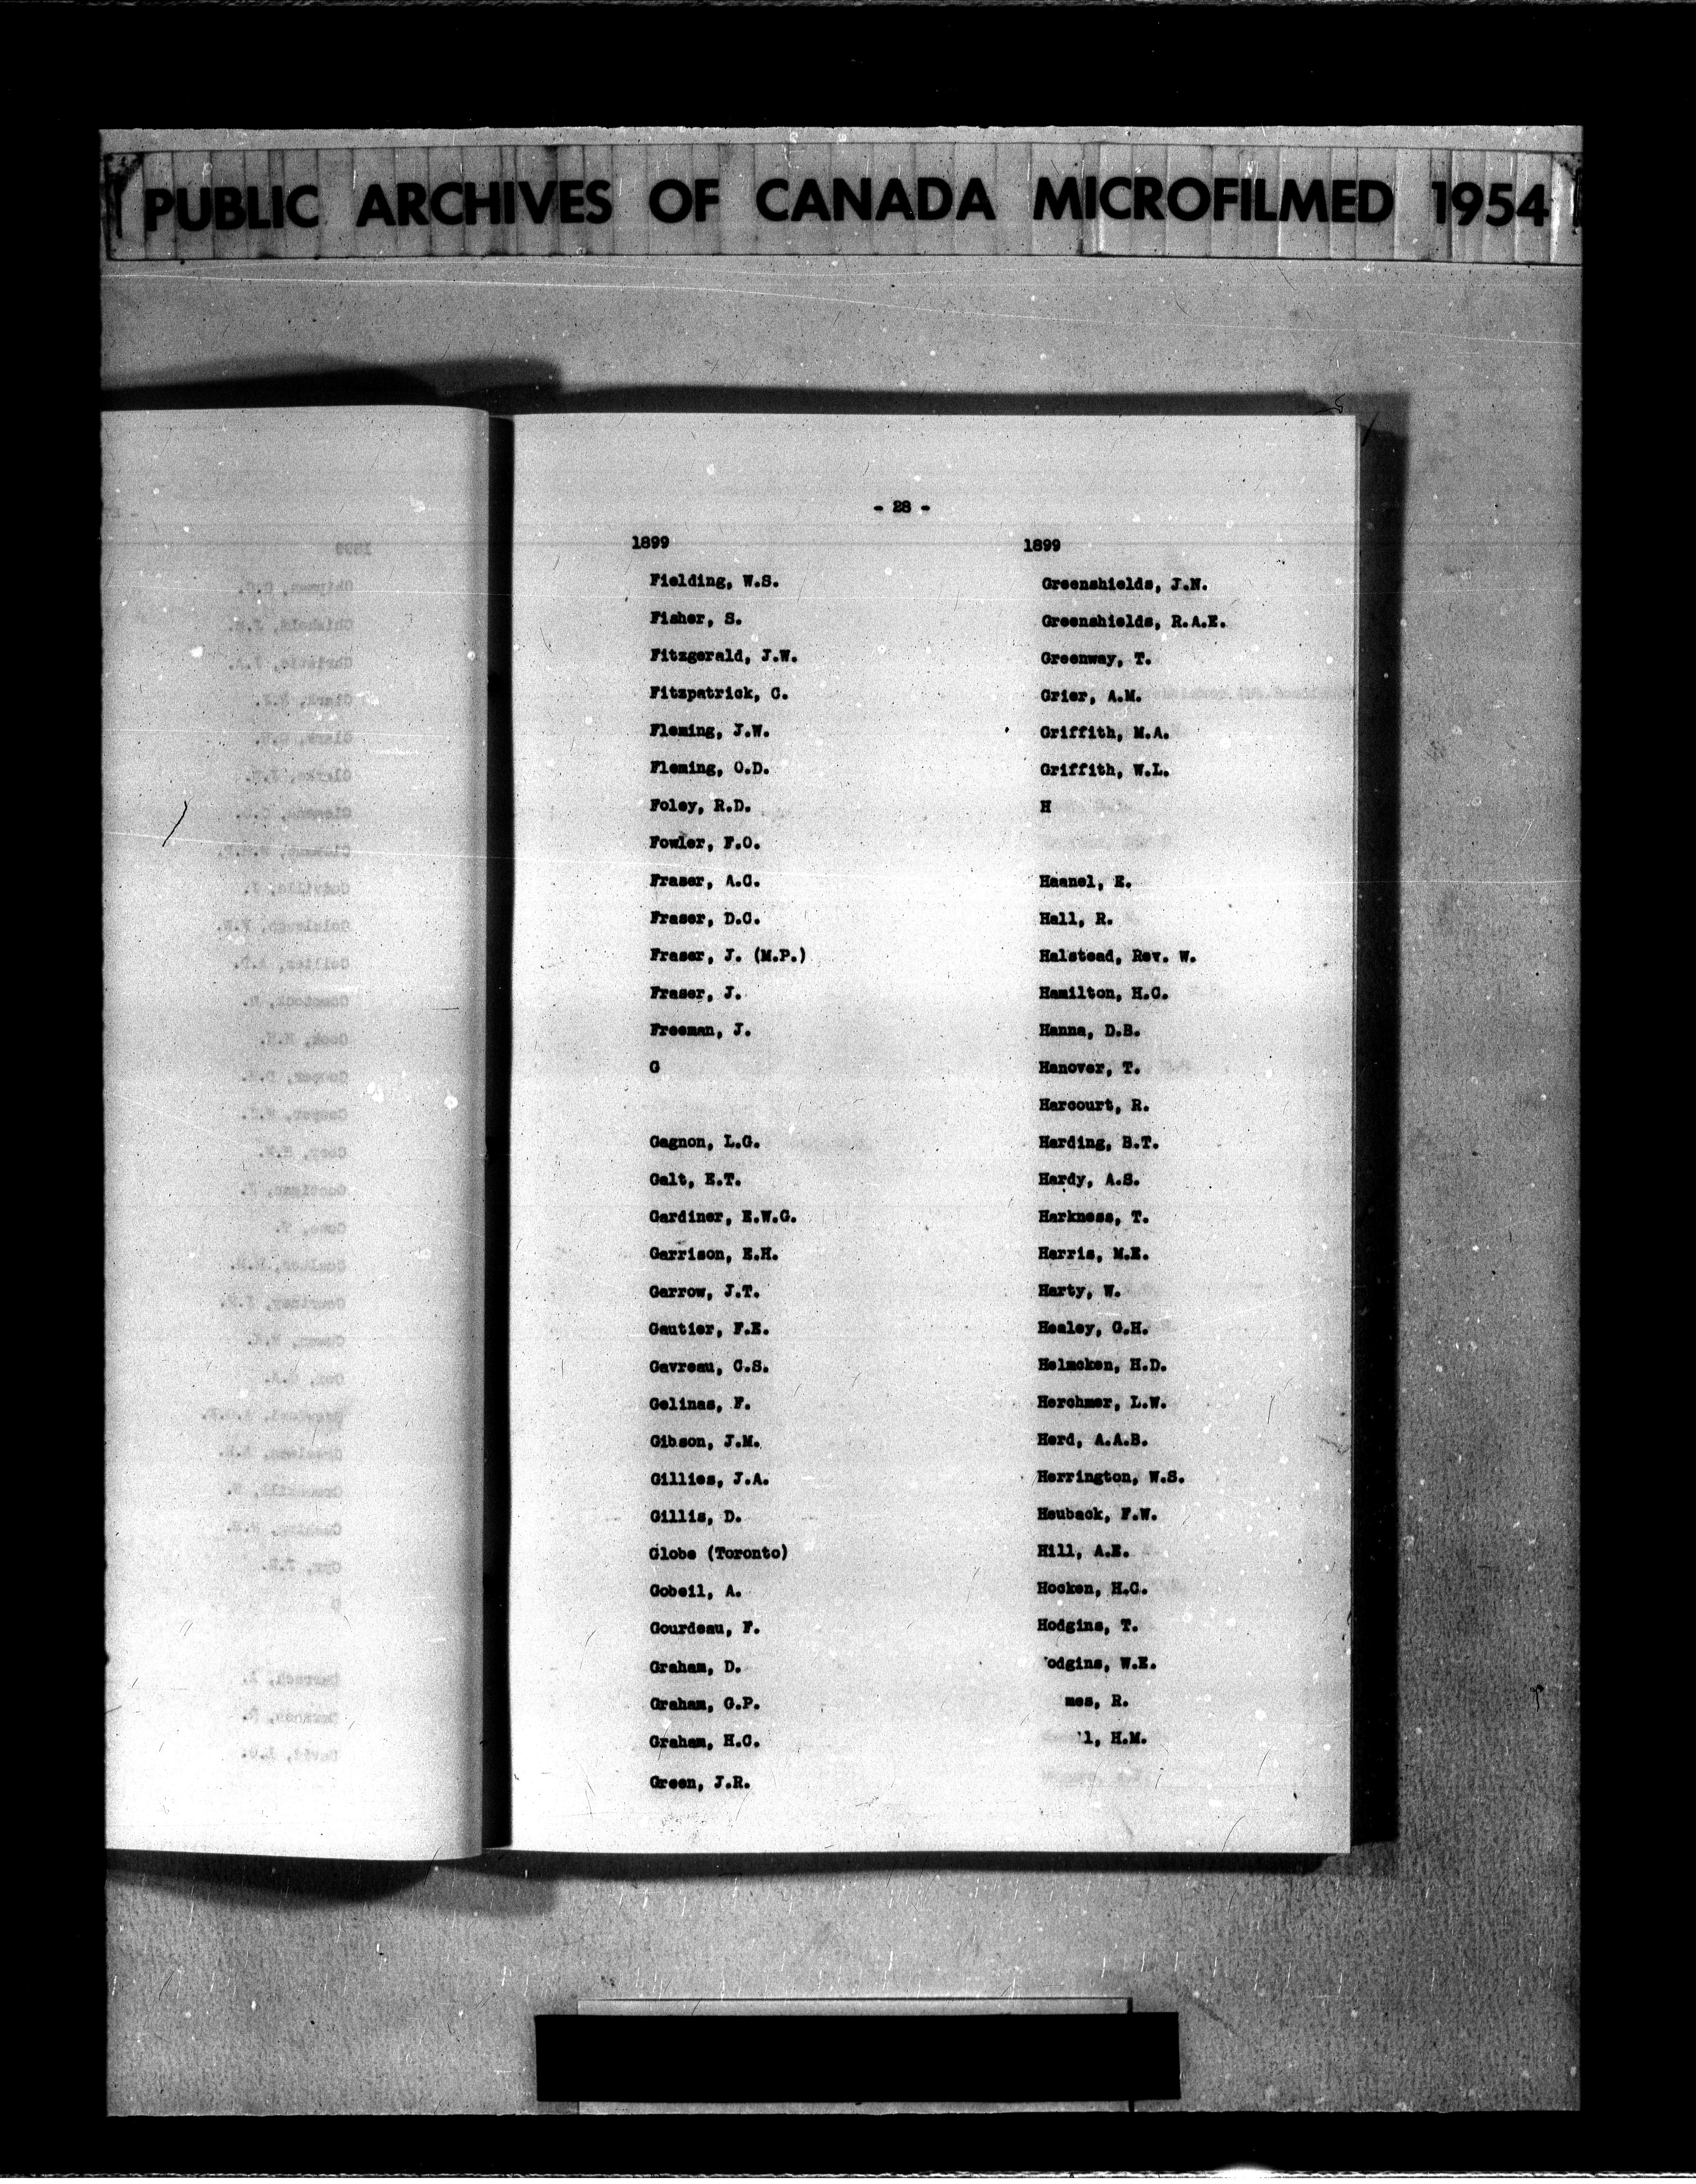 PUBLIC ARCHIVES OF CANADA MICROFILMED 1954
- 28 -
1899
Fielding, W.S.
Fisher, S.
Fitzgerald, J.W.
Fitzpatrick, C.
Fleming, J.W.
Fleming, O.D.
Foley, R.D.
Fowler, F.O.
Fraser, A.C.
Fraser, D.C.
Fraser, J. (M.P.)
Fraser, J.
Freeman, J.
G
Gagnon, L.G.
Galt, E.T.
Gardiner, E.W.G.
Garrison, E.H.
Garrow, J.T.
Gautier, F.E.
Gavreau, C.S.
Gelinas, F.
Gibson, J.M.
Gillies, J.A.
Gillis, D.
Globe (Toronto)
Gobeil, A.
Gourdeau, F.
Graham, D.
Graham, G.P.
Graham, H.C.
Green, J.R.
1899
Greenshields, J.N.
Greenshields, R.A.E.
Greenway, T.
Grier, A.M.
Griffith, M.A.
Griffith, W.L.
H
Haanel, E.
Hall, R.
Halstead, Rev. W.
Hamilton, H.C.
Hanna, D.B.
Hanover, T.
Harcourt, R.
Harding, B.T.
Hardy, A.S.
Harkness, T.
Harris, M.E.
Harty, W.
Healey, G.H.
Helmcken, H.D.
Herchmer, L.W.
Herd, A.A.B.
Herrington, W.S.
Heuback, F.W.
Hill, A.E.
Hocken, H.C.
Hodgins, T.
odgins, W.E.
mes, R.
l, H.M.